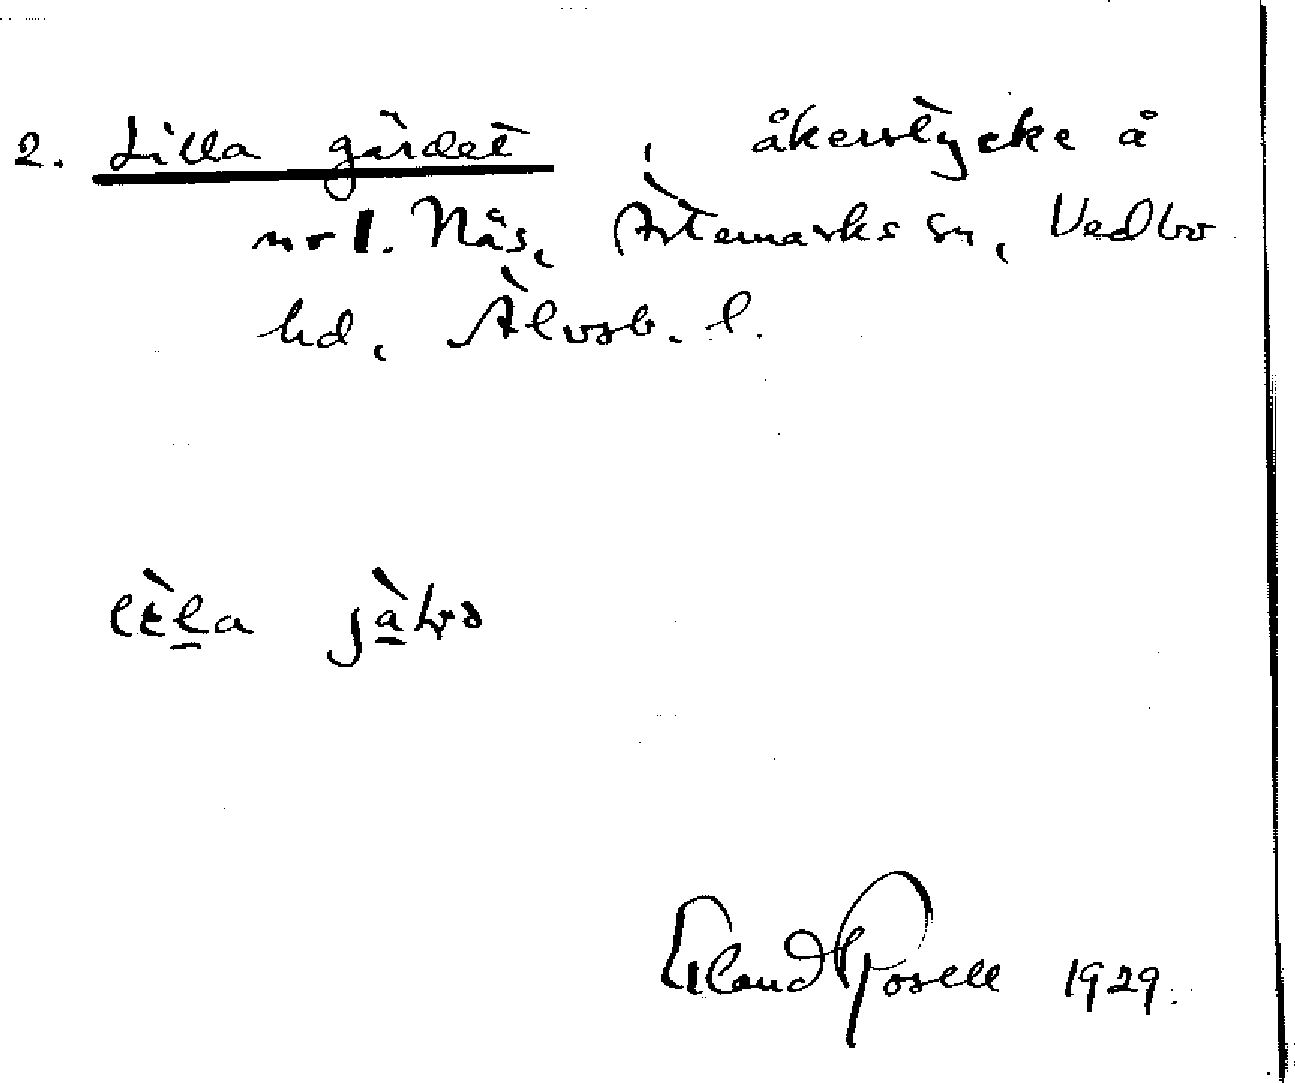 2. Lilla gärdet, åkerstycke å
nr 1. Näs, Ärtemarks sn, Vedbo
hd, Älvsb. l.
Erland Rosell 1929.